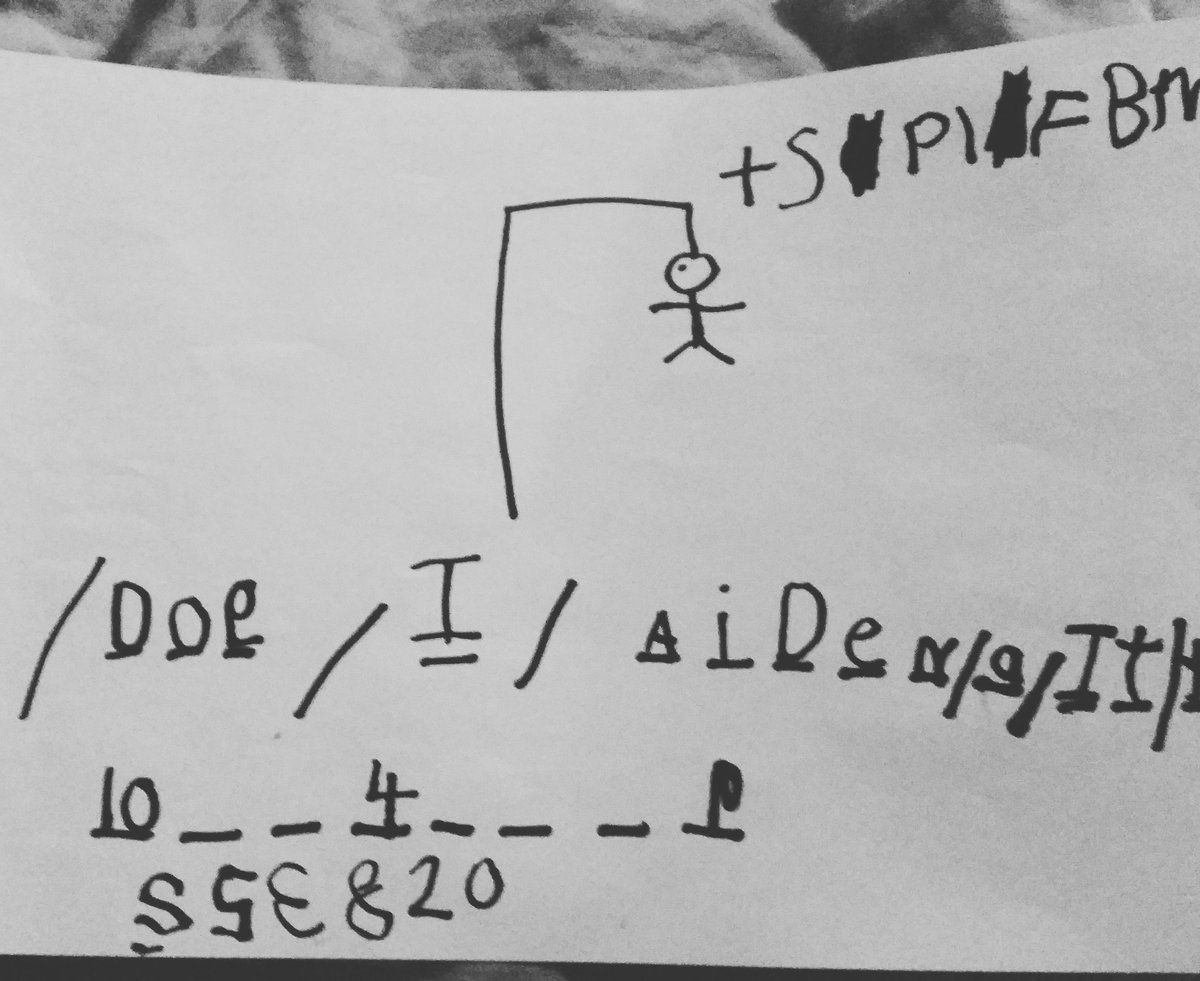 +S PI F B
/DOE / I / AiDe /g/It/
10 _ _ 4 _ _ _ _ P
S 5 3 8 2 0